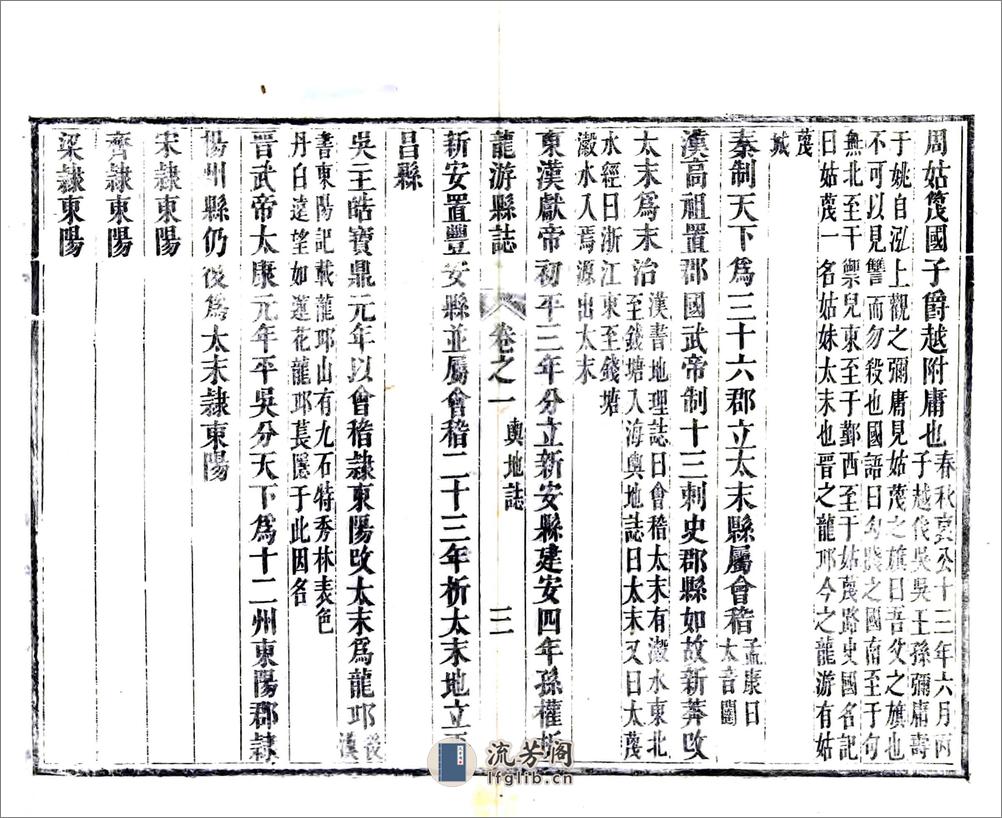 周姑篾國子爵越附庸也春秋哀公十三年六月丙
子越伐吳吳王孫彌庸壽
于姚自泓上觀之彌庸見姑蔑之旗曰吾父之旗也
不可以見讐而勿殺也國語曰勾踐之國南至于句
無北至于禦兒東至于鄞西至于姑蔑路史國名記
曰姑蔑一名姑妹太末也晉之龍邱今之龍游有姑
蔑
城
秦制天下爲三十六郡立太末縣屬會稽孟康曰
太音闥
漢高祖置郡國武帝制十三刺史郡縣如故新莽改
太末爲末治漢書地理誌曰會稽太末有瀔水東北
至錢塘入海輿地誌曰太末又曰太蔑
水經曰浙江東至錢塘
瀔水入焉源出太末
東漢獻帝初平三年分立新安縣建安四年孫權析
龍游縣誌 卷之一 輿地誌 三
新安置豐安縣並屬會稽二十三年析太末地立
昌縣
吳王皓寶鼎元年以會稽隸東陽改太末爲龍邱後
漢
書東陽記載龍邱山有九石特秀林表色
丹白遠望如蓮花龍邱萇隱于此因名
晉武帝太康元年平吳分天下爲十二州東陽郡隸
揚州縣仍復爲太末隸東陽
宋隸東陽
齊隸東陽
梁隸東陽
流芳阁
lfglib.cn